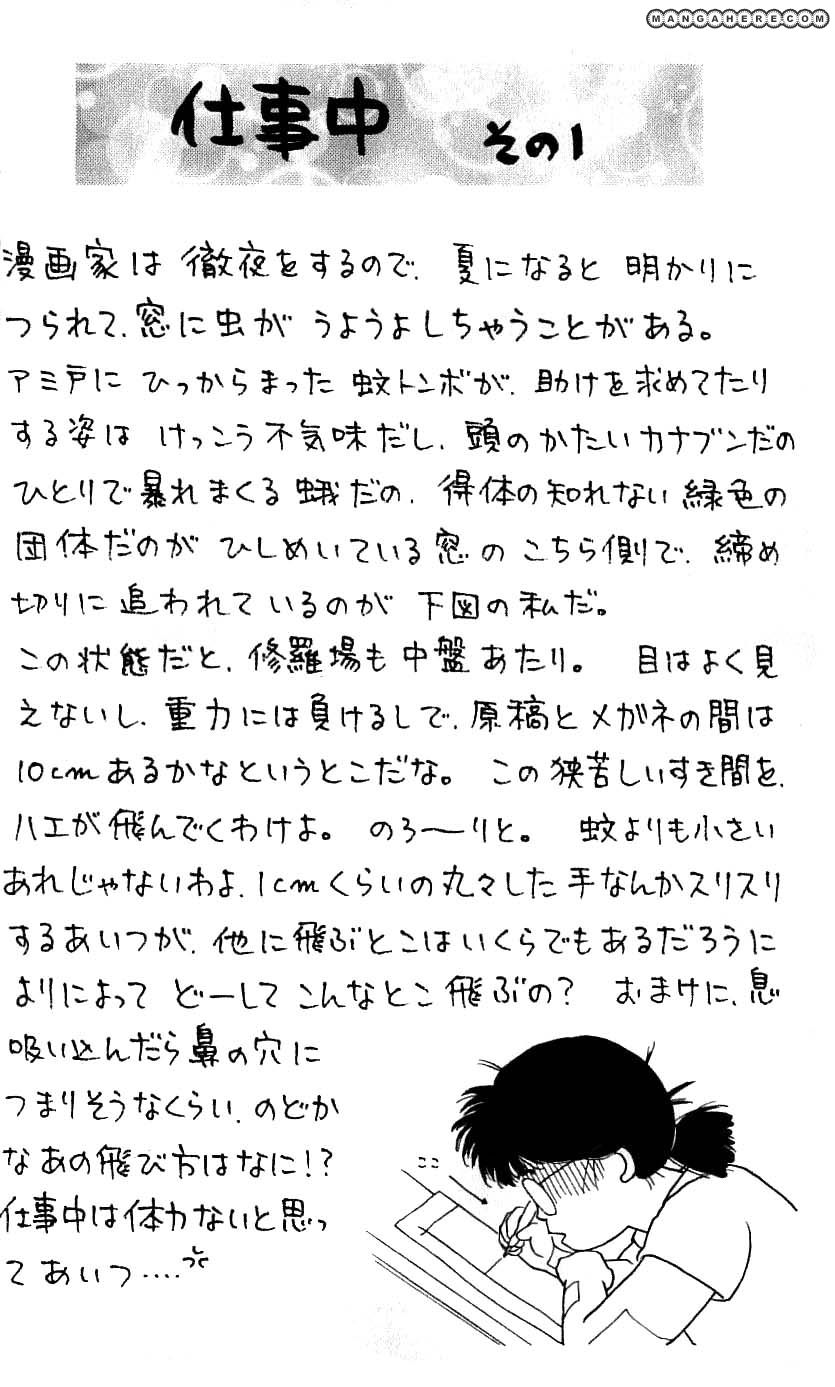 MANGAHERE.COM
仕事中 その1
漫画家は 徹夜をするので、夏になると 明かりに
つられて、窓に虫が うようよしちゃうことがある。
アミ戸に ひっからまった 蚊トンボが、助けを求めてたり
する姿は けっこう不気味だし、頭のかたいカナブンだの
ひとりで暴れまくる蛾だの、得体の知れない緑色の
団体だのが ひしめいている窓の こちら側で、締め
切りに 追われているのが 下図の私だ。
この状態だと、修羅場も中盤あたり。 目はよく見
えないし、重力には負けるしで、原稿とメガネの間は
10cmあるかなというとこだな。 この狭苦しいすき間を、
ハエが飛んでくわけよ。 のろ〜りと。 蚊よりも小さい
あれじゃないわよ、1cmくらいの丸々した手なんかスリスリ
するあいつが、他に飛ぶとこはいくらでもあるだろうに
よりによって どーして こんなとこ飛ぶの? おまけに、息
吸い込んだら鼻の穴に
つまりそうなくらい、のどか
なあの飛び方はなに!?
仕事中は体力ないと思っ
てあいつ‥‥
ここ